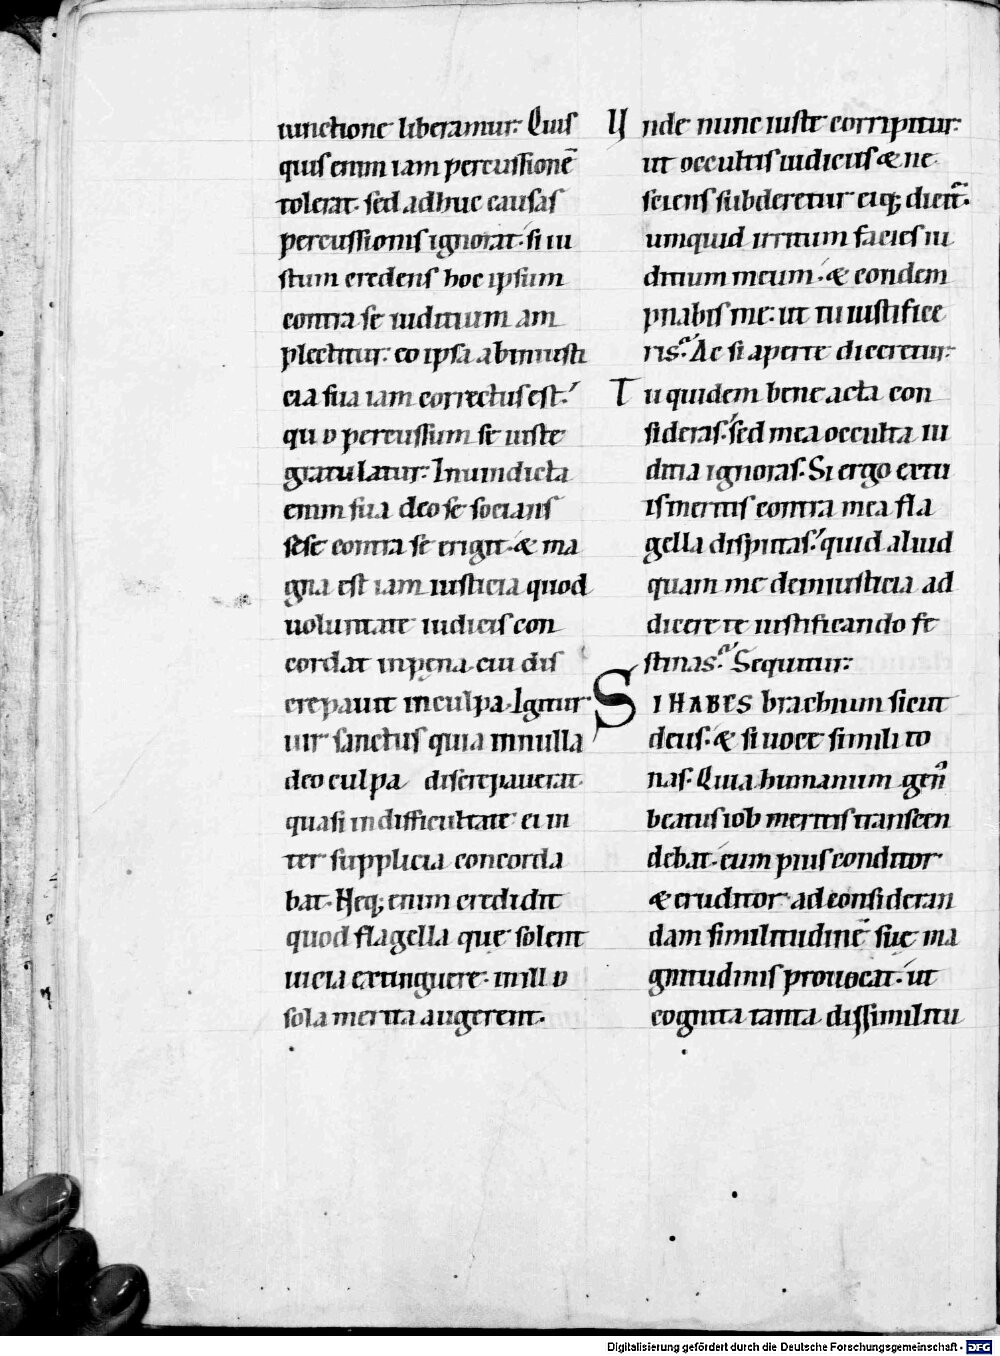 iunctione liberamur. Quis
quis enim iam percussionē
tolerat. sed adhuc causas
percussionis ignorat. si iu
stum credens hoc ipsum
contra se iuditium am
plectitur. eo ipso ab iniusti
cia sua iam correctus est.
quo percussum se iuste
gratulatur. In uindicta
enim sua deo se socians
sese contra se erigit. & ma
gna est iam iusticia quod
uoluntate iudicis con
cordat in pęna. cui dis
crepauit in culpa. Igitur
uir sanctus quia in nulla
deo culpa discrepauerat.
quasi in difficultate ei in
ter supplicia concorda
bat. Neq; enim credidit
quod flagella quę solent
uicia extinguere. in illo
sola merita augerent.
Unde nunc iuste corripitur.
ut occultis iudiciis & ne
sciens subderetur eiq; dicit̄.
umquid irritum facies iu
ditium meum. & condem
pnabis me. ut tu iustifice
ris. Ac si aperte diceretur.
Tu quidem bene acta con
sideras. sed mea occulta iu
ditia ignoras. Si ergo ex tu
is meritis contra mea fla
gella disputas. quid aliud
quam me de iniusticia ad
dicere te iustificando fe
stinas. Sequitur.
SI HABES brachium sicut
deus. & si uoce simili to
nas. Quia humanum gen̄
beatus iob meritis transcen
debat. eum pius conditor
& eruditor ad consideran
dam similitudinē suę ma
gnitudinis prouocat. ut
cognita tanta dissimilitu
Digitalisierung gefördert durch die Deutsche Forschungsgemeinschaft - DFG